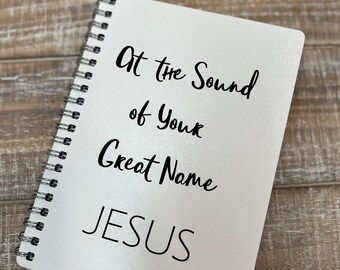 At the Sound
of Your
Great Name
JESUS